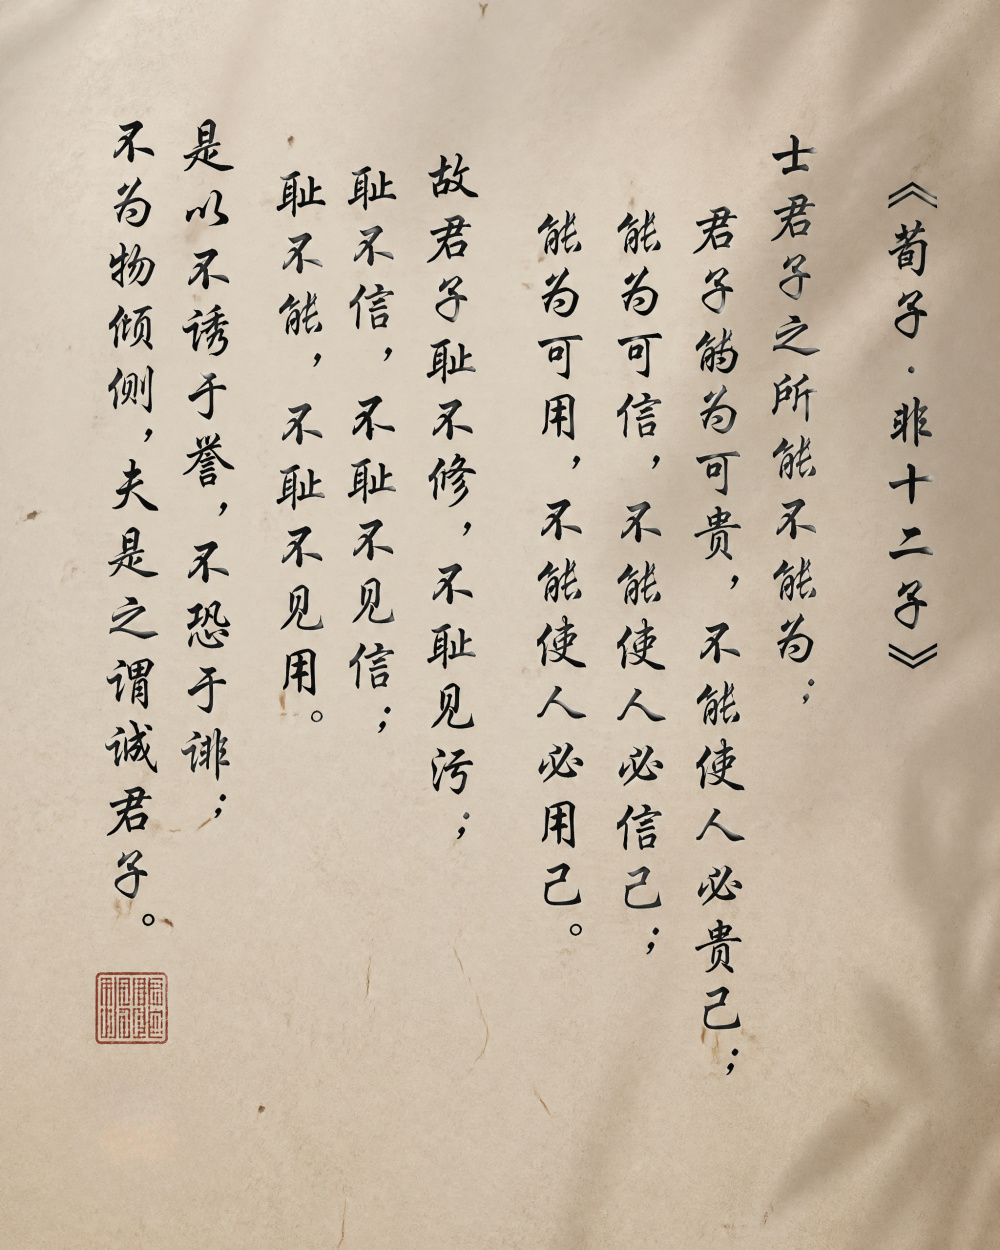 《荀子·非十二子》
士君子之所能不能为；
君子为可贵，不能使人必贵己；
能为可信，不能使人必信己；
能为可用，不能使人必用己。
故君子耻不修，不耻见污；
耻不信，不耻不见信；
耻不能，不耻不见用。
是以不诱于誉，不恐于诽；
不为物倾侧，夫是之谓诚君子。